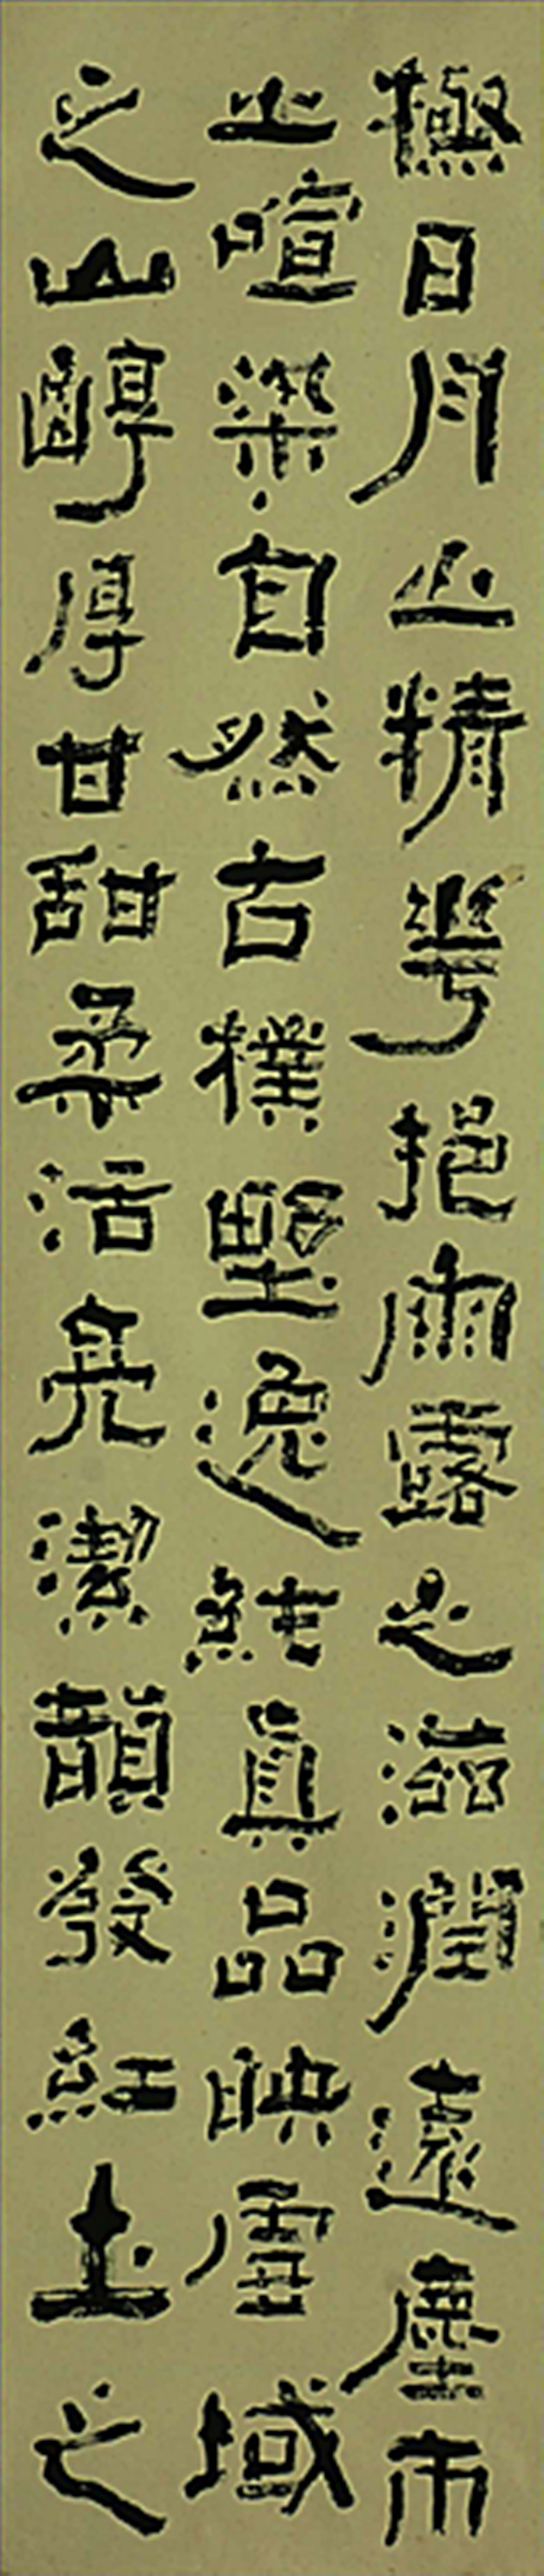 極日月之精華挹雨露之滋潤遠塵市
之喧染自然古樸野逸純真品映唐域
之山醇厚甘甜柔活亮潔韻發紅土之